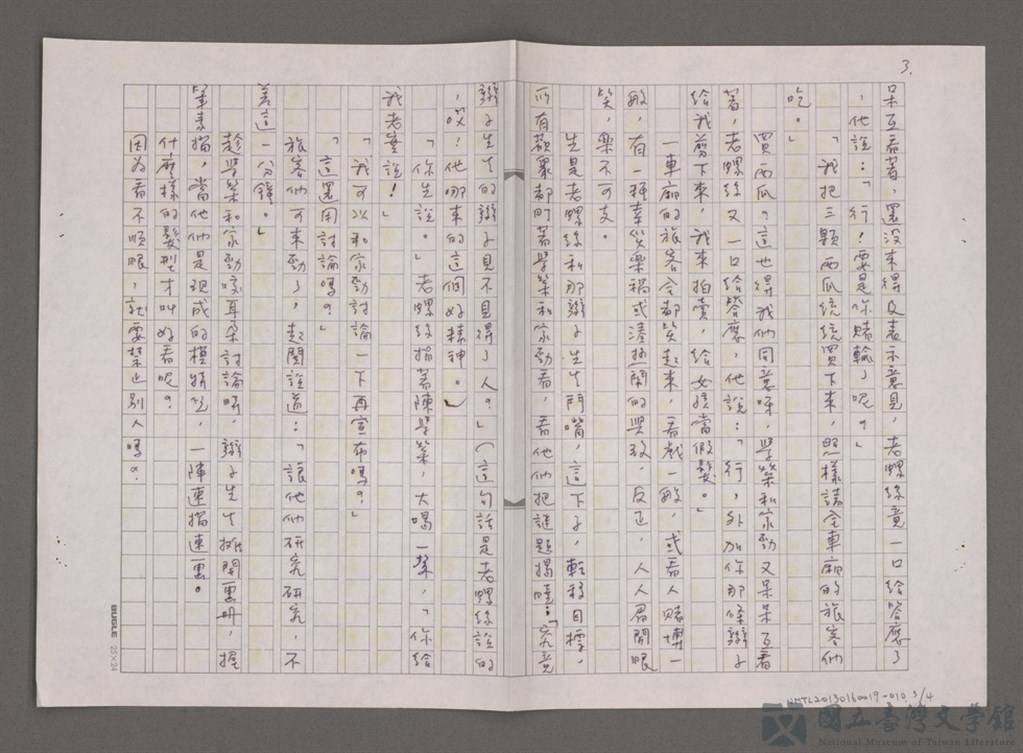 3.
呆互看著，還沒來得及表示意見，老螺絲竟一口給答應了
，他說：「行！要是你賭輸了呢？」
「我把三顆西瓜統統買下來，照樣請全車廂的旅客們
吃。」
買西瓜？這也得我們同意呀，學榮和家勁又呆呆互看
著，老螺絲又一口給答應，他說：「行，外加你那條辮子
給我剪下來，我來拍賣，給女孩當假髮。」
一車廂的旅客全都笑起來，看戲一般，或看人賭博一
般，有一種幸災樂禍或湊熱鬧的興致，反正，人人眉開眼
笑，樂不可支。
先是老螺絲和那辮子先生鬥嘴，這下子，轉移目標，
所有觀眾都盯著學榮和家勁看，看他們把謎題揭曉：「究竟
辮子先生的辮子見不見得了人？」（這句話是老螺絲說的
，哎！他哪來的這個好精神。）
「你先說。」老螺絲指著陳學榮，大喝一聲，「你給
我老實說！」
「我可以和家勁討論一下再宣布嗎？」
「這還用討論嗎？」
旅客們可來勁了，起鬨說道：「讓他們研究研究，不
差這一分鐘。」
趁學榮和家勁咬耳朵討論時，辮子先生攤開畫冊，握
筆素描，當他們是現成的模特兒，一陣速描速畫。
什麼樣的髮型才叫好看呢？
因為看不順眼，就要禁止別人嗎？
BUGLE 25×24
NMTL20130160019-010 3/4
國立臺灣文學館
National Museum of Taiwan Literature